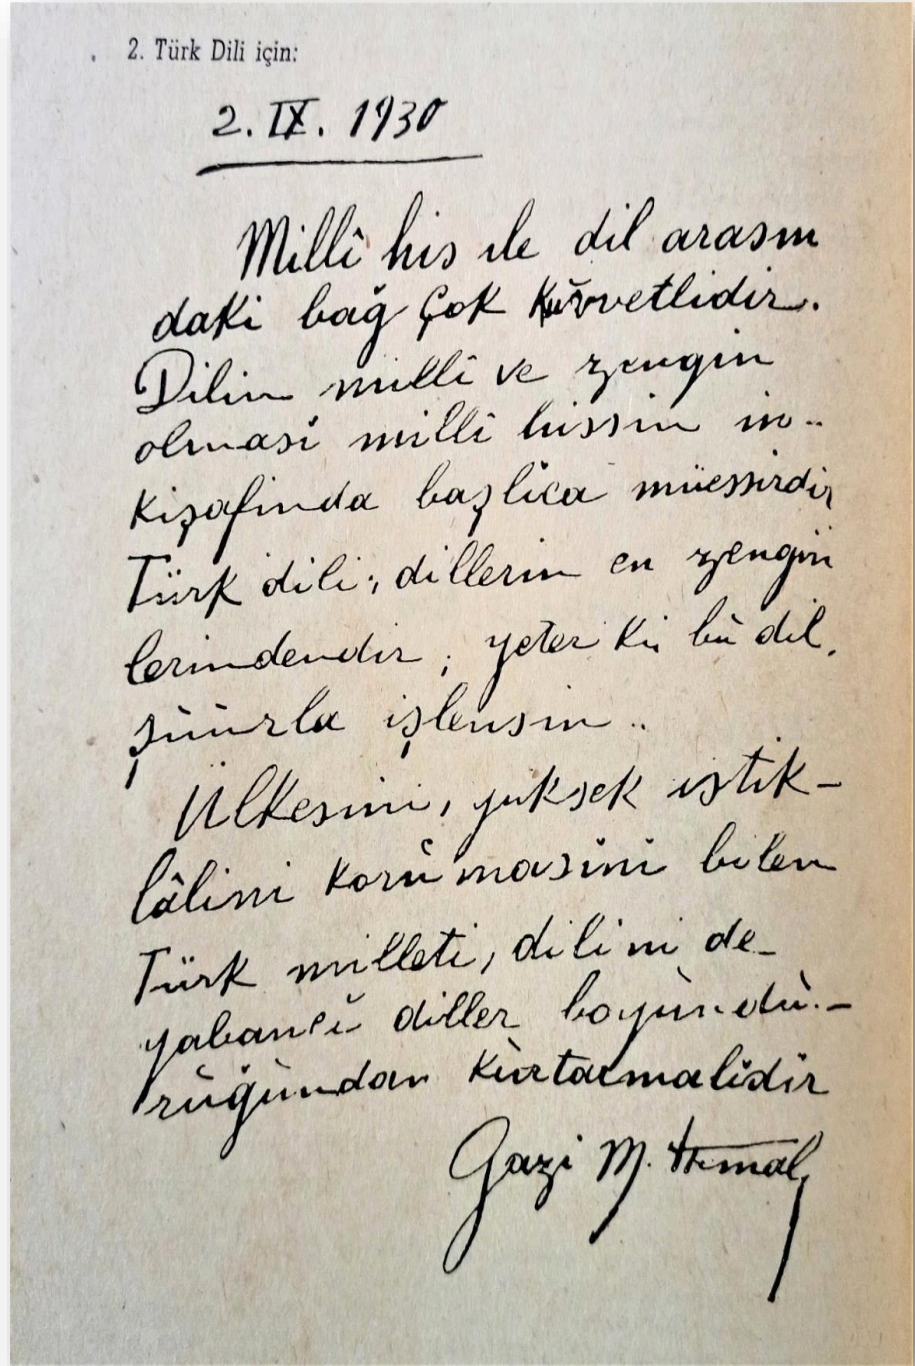 2. Türk Dili için:
2. IX. 1930
Millî his ile dil arasın
daki bağ çok kuvvetlidir.
Dilin millî ve zengin
olması millî hissin in..
kişafında başlıca müessirdir
Türk dili, dillerin en zengin
lerindendir; yeter ki bu dil,
şuurla işlensin..
Ülkesini, yüksek istik-
lâlini korumasını bilen
Türk milleti, dilini de-
yabancı diller boyundu-
ruğundan kurtarmalıdır
Gazi M. Kemal